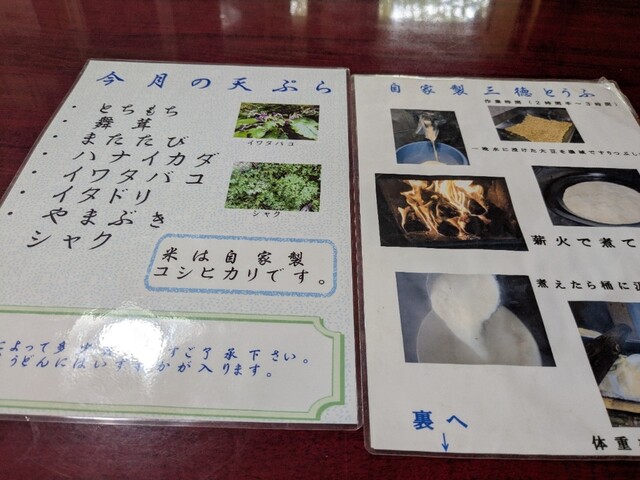 今月の天ぷら
・とちもち
・舞茸
・またたび
・ハナイカダ
・イワタバコ
・イタドリ
・やまぶき
シャク
イワタバコ
シャク
米は自家製
コシヒカリです。
よって多 すご了承下さい。
うどんにはいりすずかが入ります。
自家製三徳とうふ
作業時間(2時間半~3時間)
一晩水に浸けた大豆を器械ですりつぶし
薪火で煮て
煮えたら桶に
裏へ
↓
体重